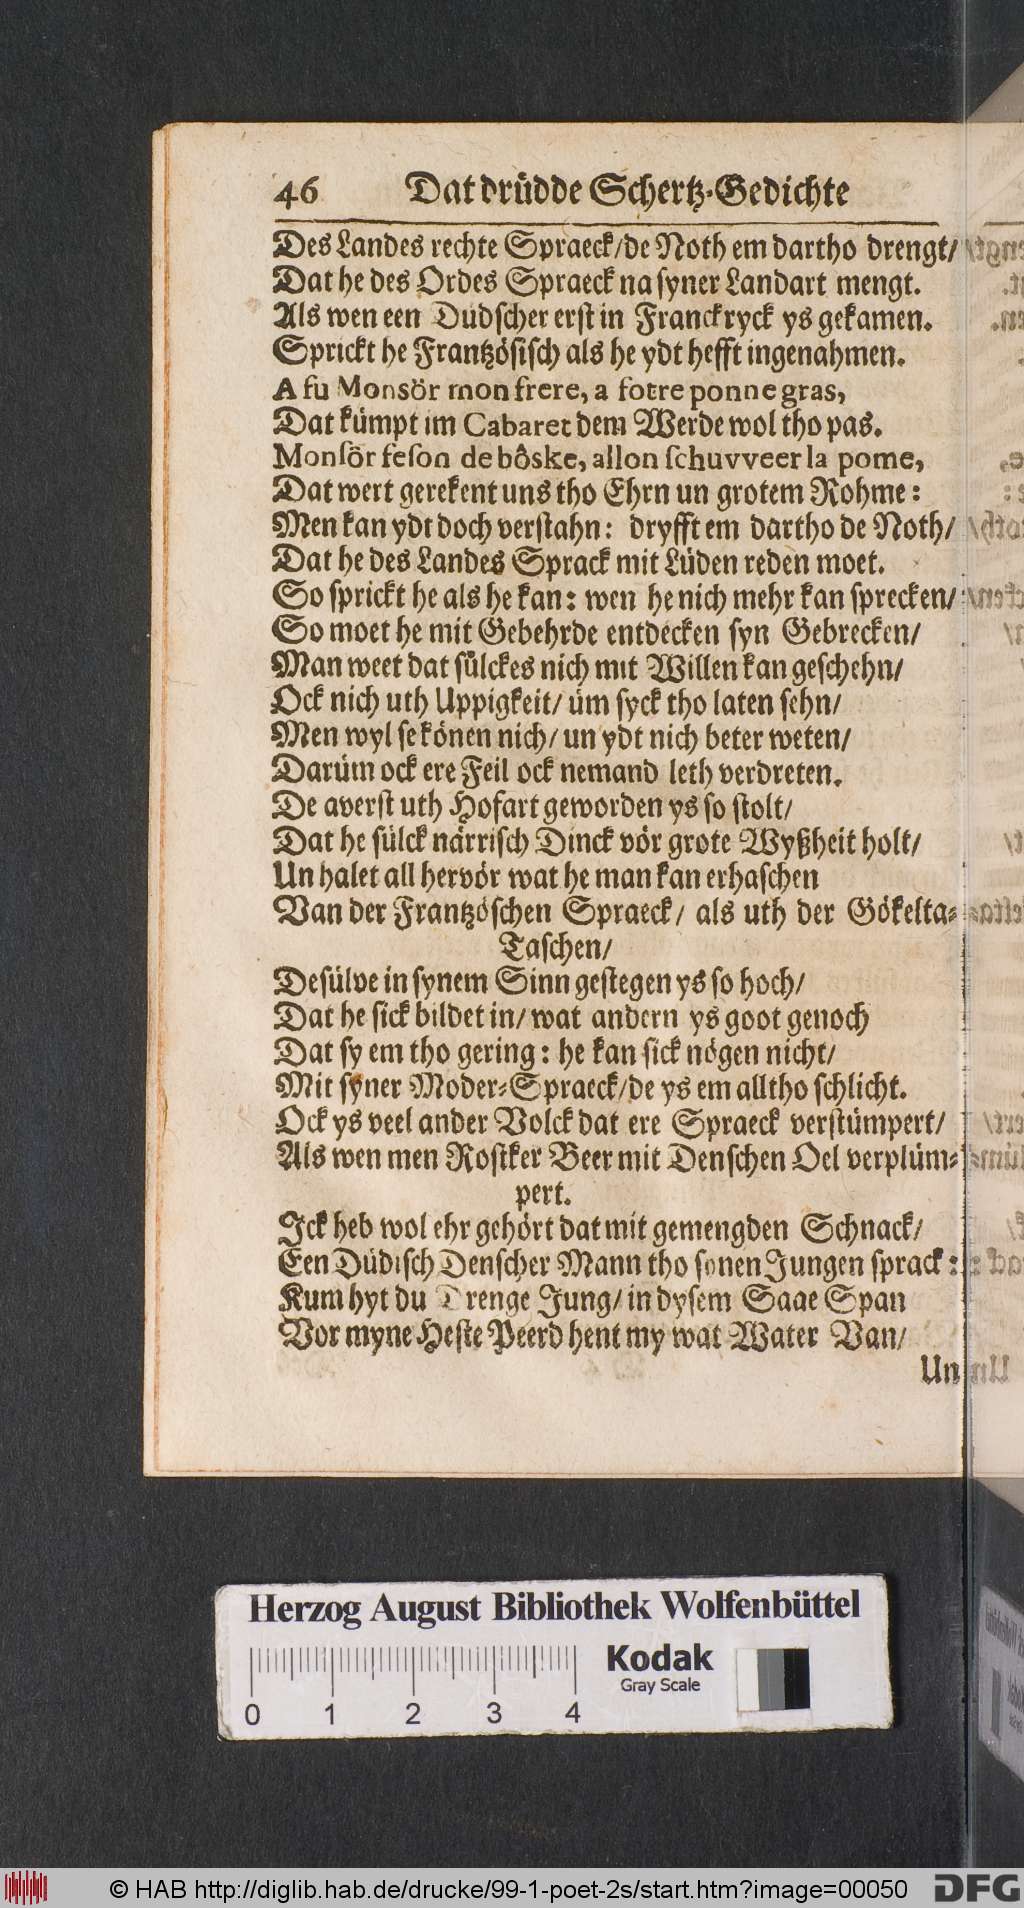 46 Dat drüdde Schertz-Gedichte
Des Landes rechte Spraeck/ de Noth em dartho drengt/
Dat he des Ordes Spraeck na syner Landart mengt.
Als wen een Dudscher erst in Franckryck ys gekamen.
Sprickt he Frantzösisch als he ydt hefft ingenahmen.
A fu Monsör mon frere, a fotre ponne gras,
Dat kümpt im Cabaret dem Werde wol tho pas.
Monsör feson de bôske, allon schuvveer la pome,
Dat wert gerekent uns tho Ehrn un grotem Rohme:
Men kan ydt doch verstahn: dryfft em dartho de Noth/
Dat he des Landes Sprack mit Lüden reden moet.
So sprickt he als he kan: wen he nich mehr kan sprecken/
So moet he mit Gebehrde entdecken syn Gebrecken/
Man weet dat sülckes nich mit Willen kan geschehn/
Ock nich uth Uppigkeit/ üm syck tho laten sehn/
Men wyl se könen nich/ un ydt nich beter weten/
Darüm ock ere Feil ock nemand leth verdreten.
De averst uth Hofart geworden ys so stolt/
Dat he sülck närrisch Dinck vör grote Wyßheit holt/
Un halet all hervör wat he man kan erhaschen
Van der Frantzöschen Spraeck/ als uth der Gökelta-
Taschen/
Desülve in synem Sinn gestegen ys so hoch/
Dat he sick bildet in/ wat andern ys goot genoch
Dat sy em tho gering: he kan sick nögen nicht/
Mit syner Moder-Spraeck/ de ys em alltho schlicht.
Ock ys veel ander Volck dat ere Spraeck verstümpert/
Als wen men Rostker Beer mit Denschen Oel verplüm-
pert.
Ick heb wol ehr gehört dat mit gemengden Schnack/
Een Düdisch Denscher Mann tho synen Jungen sprack:
Kum hyt du Drenge Jung/ in dysem Saae Span
Vor myne Heste Peerd hent my wat Water Van/
Un
Herzog August Bibliothek Wolfenbüttel
0 1 2 3 4
Kodak
Gray Scale
© HAB http://diglib.hab.de/drucke/99-1-poet-2s/start.htm?image=00050
DFG